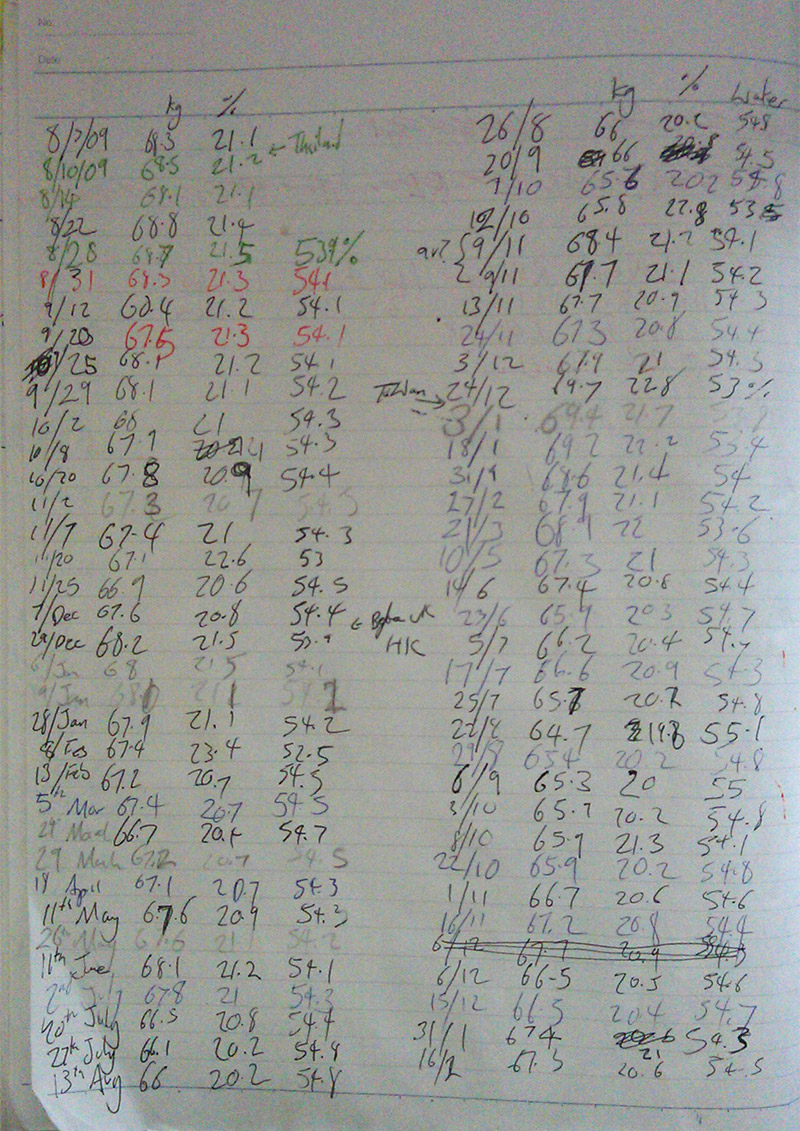 No.
Date
kg %
8/7/09 68.3 21.1 ← Thailand
8/10/09 68.5 21.2
8/14 68.1 21.1
8/22 68.8 21.4
8/28 68.7 21.5 53.9%
8/31 68.3 21.3 54.1
9/12 68.4 21.2 54.1
9/20 67.5 21.3 54.1
/25 68.1 21.2 54.1
9/29 68.1 21.1 54.2
10/2 68 21 54.3
10/8 67.7 21 54.3
10/20 67.8 20.9 54.4
11/2 67.3 20.7 54.5
11/7 67.4 21 54.3
11/20 67.1 22.6 53
11/25 66.9 20.6 54.5
7/Dec 67.6 20.8 54.4 ← UK
29/Dec 68.2 21.5 53.9 HK
6/Jan 68 21.5 54.1
9/Jan 68.0 21.1 54.2
28/Jan 67.9 21.1 54.2
8/Feb 67.4 23.4 52.5
13/Feb 67.2 20.7 54.5
5th Mar 67.4 20.7 54.5
21st March 66.7 20.4 54.7
29 March 67.2 20.7 54.5
18 April 67.1 20.7 54.3
11th May 67.6 20.9 54.3
26th May 67.6 21.1 54.2
11th June 68.1 21.2 54.1
2nd July 67.8 21 54.3
20th July 66.5 20.8 54.4
27th July 66.1 20.2 54.8
13th Aug 66 20.2 54.8
kg % Water
26/8 66 20.2 54.8
20/9 66 54.5
7/10 65.6 20.2 54.8
12/10 65.8 22.8 53.5
9/11 68.4 21.7 54.1
29/11 67.7 21.1 54.2
13/11 67.7 20.9 54.3
24/11 67.3 20.8 54.4
3/12 67.9 21 54.3
Taiwan → 24/12 69.7 22.8 53%
3/1 69.4 21.7
18/1 69.2 22.2 53.4
31/1 68.6 21.4 54
27/2 67.9 21.1 54.2
21/3 68.1 22 53.6
10/5 67.3 21 54.3
14/6 67.4 20.8 54.4
23/6 65.9 20.3 54.7
5/7 66.2 20.4 54.7
17/7 66.6 20.9 54.3
25/7 65.7 20.7 54.8
22/8 64.7 19.8 55.1
29/8 65.4 20.2 54.8
6/9 65.3 20 55
3/10 65.7 20.2 54.8
8/10 65.9 21.3 54.1
22/10 65.9 20.2 54.8
1/11 66.7 20.6 54.6
16/11 67.2 20.8 54.4
6/12 67.7 20.9 54.3
6/12 66.5 20.5 54.6
15/12 66.5 20.4 54.7
31/1 67.4 21 54.3
16/2 67.3 20.6 54.5